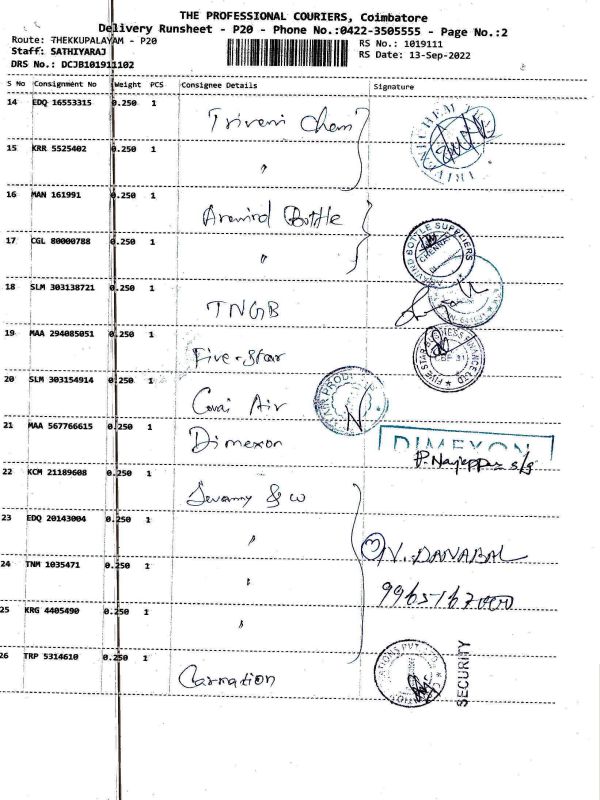 THE PROFESSIONAL COURIERS, Coimbatore
Delivery Runsheet - P20 - Phone No.:0422-3505555 - Page No.:2
Route: THEKKUPALAYAM - P20
RS No.: 1019111
Staff: SATHIYARAJ
RS Date: 13-Sep-2022
DRS No.: DCJB101911102
S No Consignment No Weight PCS Consignee Details Signature
14 EDQ 16553315 0.250 1 Triveni Chem
15 KRR 5525402 0.250 1 〃
16 MAN 161991 0.250 1 Aravind Bottle
ARAVIND BOTTLE SUPPLIERS
CHENNAI
17 CGL 80000788 0.250 1 〃
18 SLM 303138721 0.250 1 TNGB
19 MAA 294085051 0.250 1 Five-Star
FIVE STAR BUSINESS FINANCE LTD
20 SLM 303154914 0.250 1 Covai Air
21 MAA 567766615 0.250 1 Dimexon
DIMEXON
22 KCM 21189608 0.250 1
23 EDQ 20143004 0.250 1 〃
N. DANABAL
24 TNM 1035471 0.250 1 〃
25 KRG 4405490 0.250 1 〃
26 TRP 5314610 0.250 1 Carnation
SECURITY